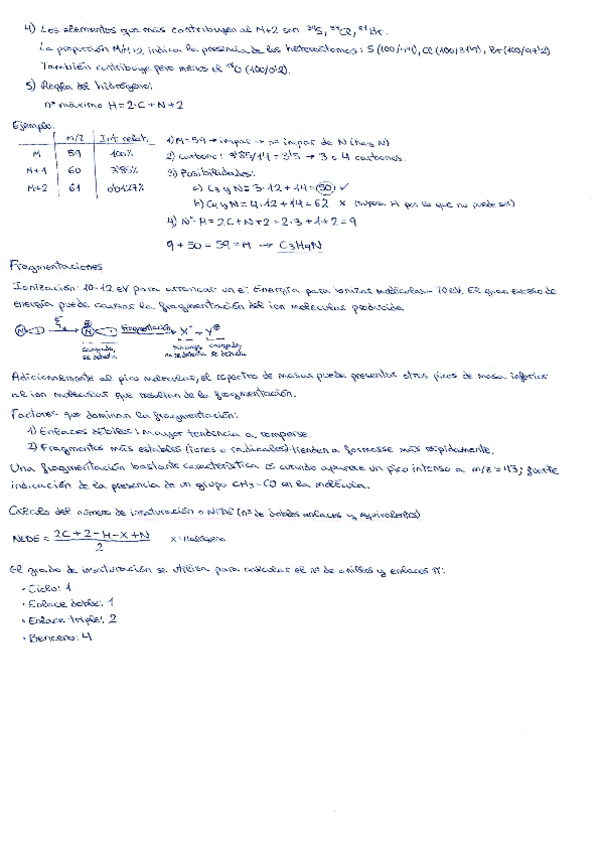 4) Los elementos que más contribuyen al M+2 son ³⁴S, ³⁷Cl, ⁸¹Br.
La proporción M/M+2 indica la presencia de los heteroátomos: S (100/4'4), Cl (100/31'9), Br (100/97'2)
También contribuye pero menos el ¹⁸O (100/0'2).
5) Regla del hidrógeno:
nº máximo H = 2·C + N + 2
Ejemplo:
M/Z Int. relat.
M 59 100%
M+1 60 3'85%
M+2 61 0'0127%
1) M=59 → impar → nº impar de N (hay N)
2) Carbono: 3'85/1'1 = 3'5 → 3 o 4 carbonos.
3) Posibilidades:
a) C₃ y N = 3·12 + 14 = 50 ✓
b) C₄ y N = 4·12 + 14 = 62 x (supera M por lo que no puede ser)
4) Nº H = 2C + N + 2 = 2·3 + 1 + 2 = 9
9 + 50 = 59 = M → C₃H₉N
Fragmentaciones
Ionización: 10-12 eV para arrancar un e⁻. Energía para ionizar moléculas ~ 70 eV. El gran exceso de
energía puede causar la fragmentación del ion molecular producido.
Fragmentación X˙ + Y⊕
cargado, se detecta
no se detecta
cargado, se detecta
Adicionalmente al pico molecular, el espectro de masas puede presentar otros picos de masa inferior
al ion molecular que resultan de la fragmentación.
Factores que dominan la fragmentación:
1) Enlaces débiles: mayor tendencia a romperse.
2) Fragmentos más estables (iones o radicales) tienden a formarse más rápidamente.
Una fragmentación bastante característica es cuando aparece un pico intenso a m/z = 43; fuerte
indicación de la presencia de un grupo CH₃-CO en la molécula.
Cálculo del número de insaturación o NEDE (nº de dobles enlaces y equivalentes)
NEDE = 2C + 2 - H - X + N / 2 X = Halógeno
El grado de insaturación se utiliza para calcular el nº de anillos y enlaces π:
· Ciclo: 1
· Enlace doble: 1
· Enlace triple: 2
· Benceno: 4